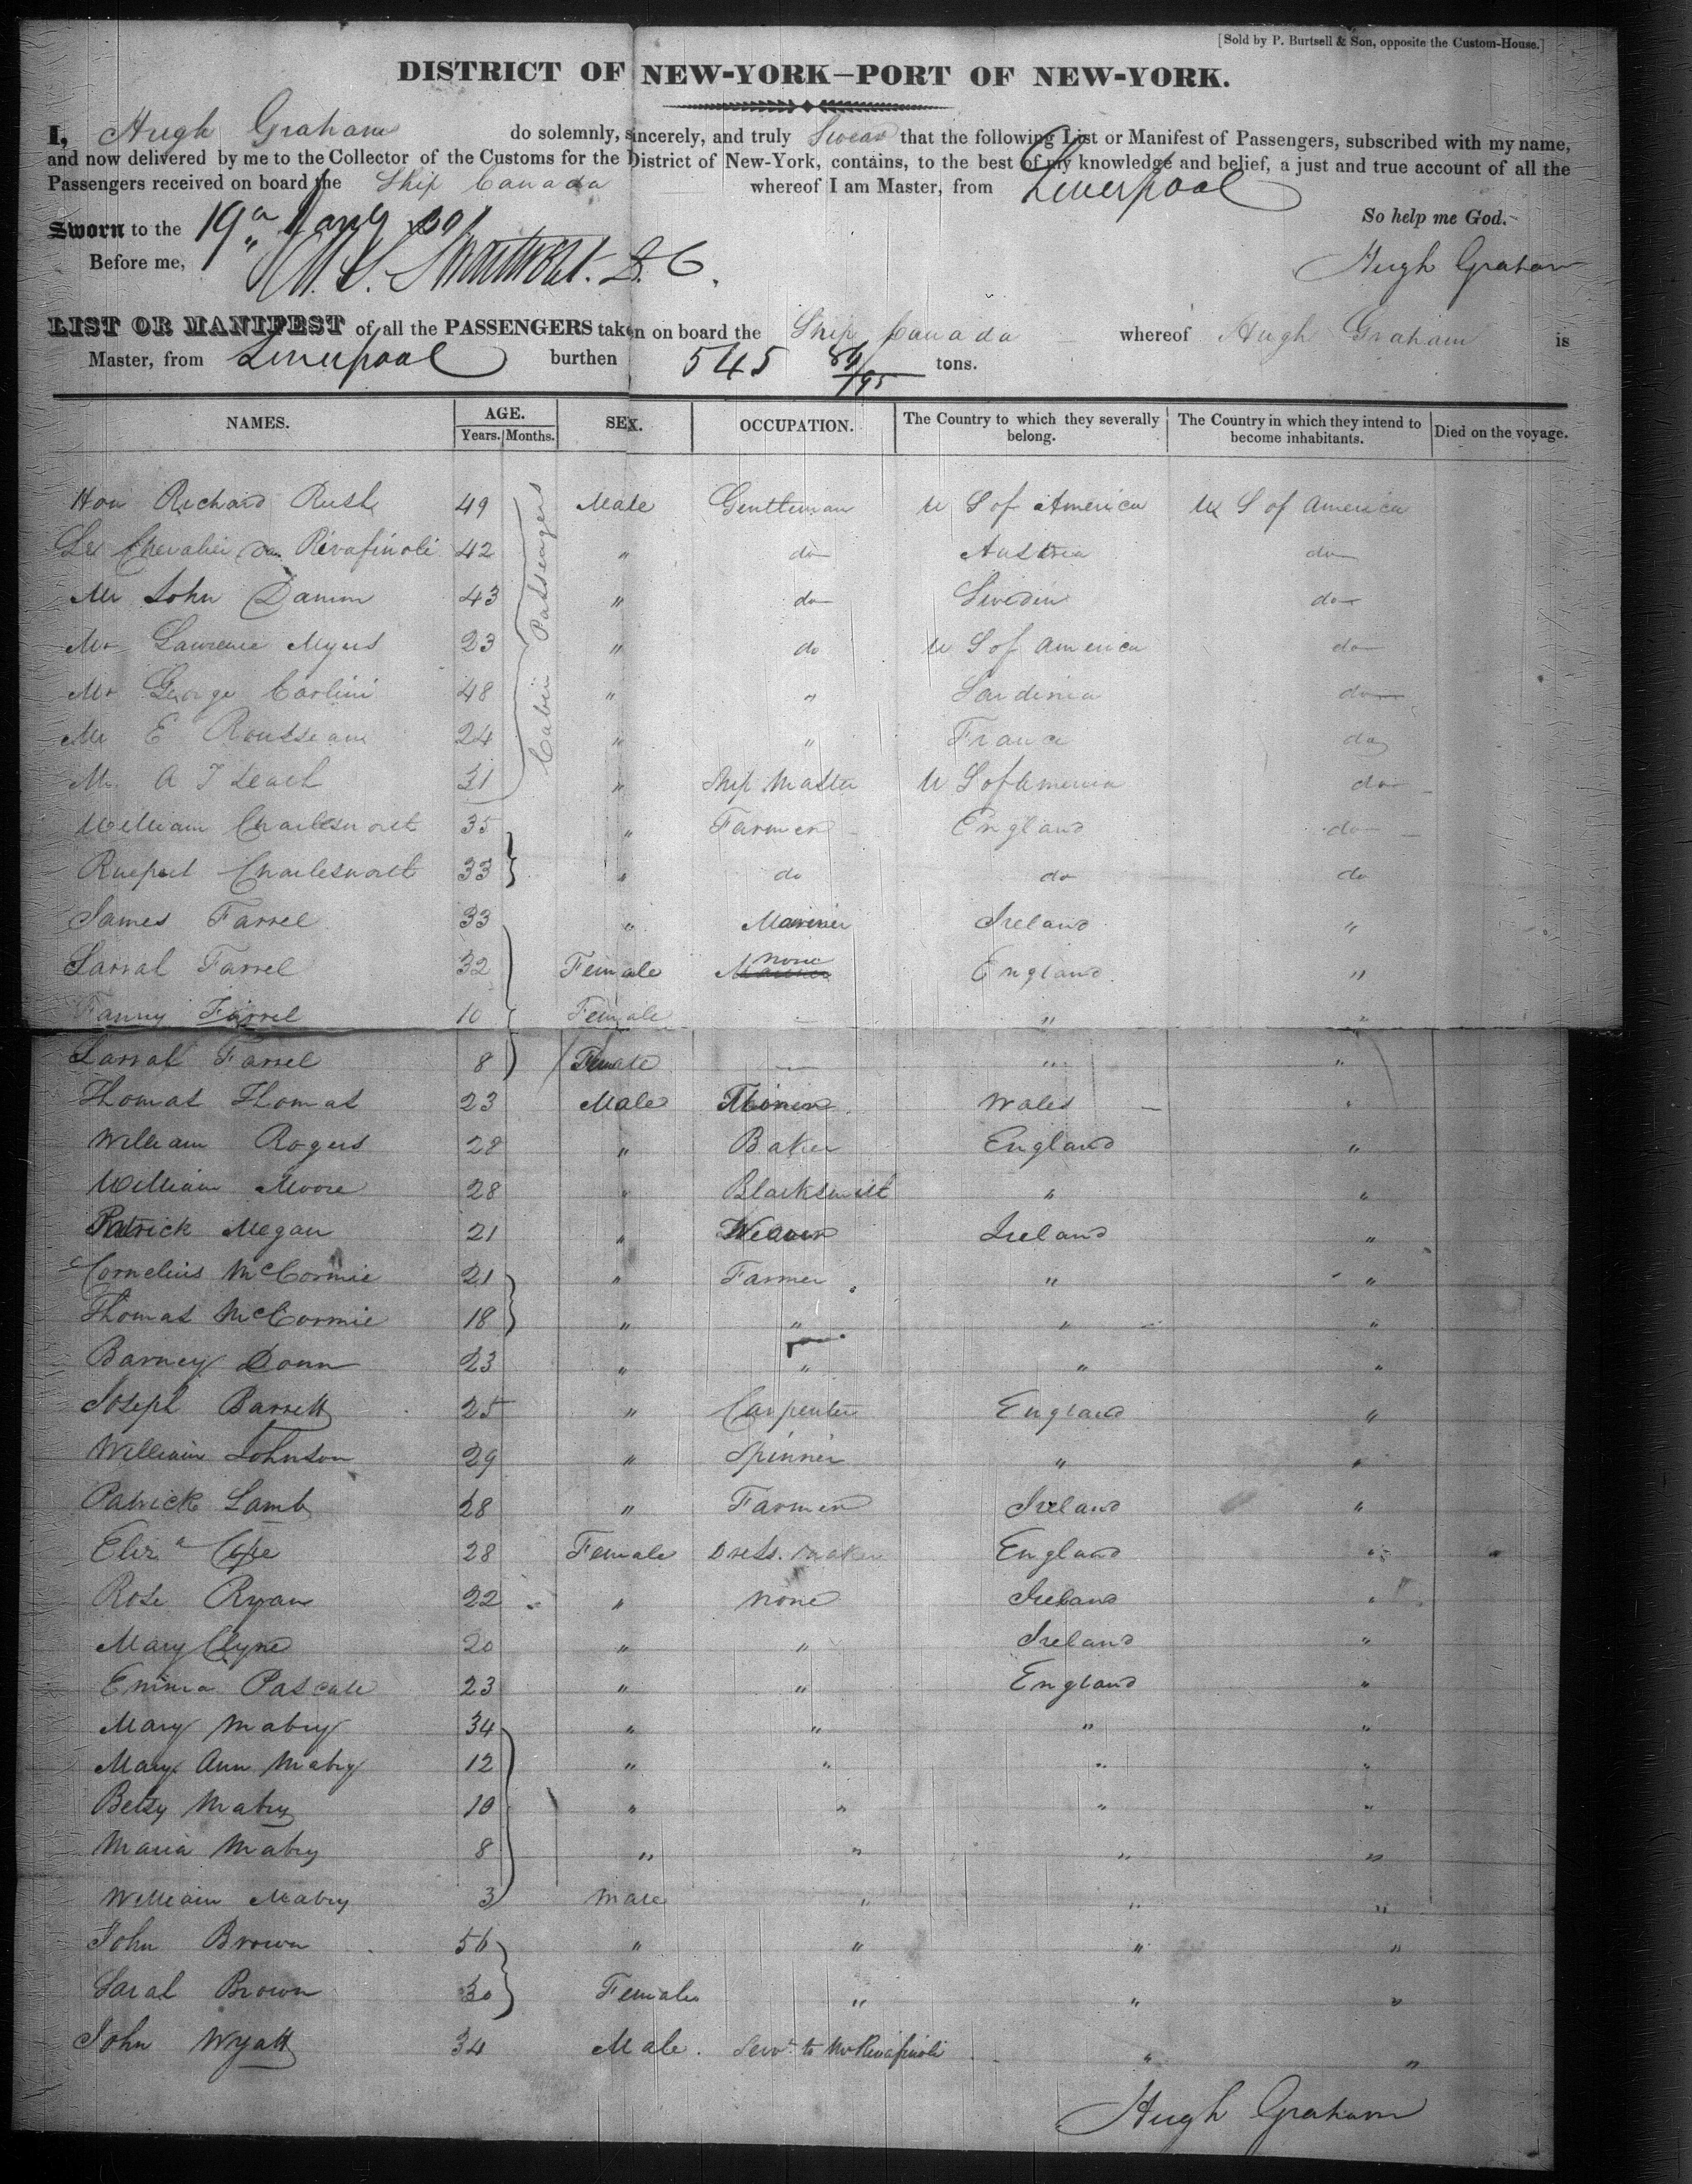 [Sold by P. Burtsell & Son, opposite the Custom-House.]
DISTRICT OF NEW-YORK—PORT OF NEW-YORK.
I, Hugh Graham do solemnly, sincerely, and truly Swear that the following List or Manifest of Passengers, subscribed with my name,
and now delivered by me to the Collector of the Customs for the District of New-York, contains, to the best of my knowledge and belief, a just and true account of all the
Passengers received on board the Ship Canada whereof I am Master, from Liverpool
So help me God.
Sworn to the 19
Before me, D. C. Hugh Graham
LIST OR MANIFEST of all the PASSENGERS taken on board the Ship Canada whereof Hugh Graham is
Master, from Liverpool burthen 545 84/95 tons.
NAMES. AGE. Years. Months. SEX. OCCUPATION. The Country to which they severally belong. The Country in which they intend to become inhabitants. Died on the voyage.
Cabin Passengers
Hon Richard Rush 49 Male Gentleman U S of America U S of America
Le Chevalier Rivafinoli 42 " do Austria do
Mr John Damm 43 " do Sweden do
Mr Lawrence Myers 23 " do U S of America do
Mr George Carlini 48 " " Sardinia do
Mr E Rousseau 24 " " France do
Mr. A T Leach 31 " Ship Master U S of America do
William Charlesworth 35 " Farmer England do
Charlesworth 33 " do do do
James Farrel 33 " Mariner Ireland "
Sarrah Farrel 32 Female none England "
Fanny Farrel 10 Female - " "
Sarrah Farrel 8 Female - " "
Thomas Thomas 23 Male Miner Wales "
William Rogers 28 " Baker England "
William Moore 28 " Blacksmith " "
Patrick Megan 21 " Weaver Ireland "
Cornelius McCormic 21 " Farmer " "
Thomas McCormic 18 " " " "
Barney Donn 23 " " " "
Joseph Barrett 25 " Carpenter England "
William Johnson 29 " Spinner " "
Patrick Lamb 28 " Farmer Ireland "
Eliza Cope 28 Female Dress. maker England "
Rose Ryan 22 " none Ireland "
Mary Clyne 20 " " Ireland "
Emma Pascale 23 " " England "
Mary Mabry 34 " " " "
Mary Ann Mabry 12 " " " "
Betsy Mabry 10 " " " "
Maria Mabry 8 " " " "
William Mabry 3 Male " " "
John Brown 56 " " " "
Sarah Brown 30 Female " " "
John Wyatt 34 Male. Servt to Mr Rivafinoli " "
Hugh Graham